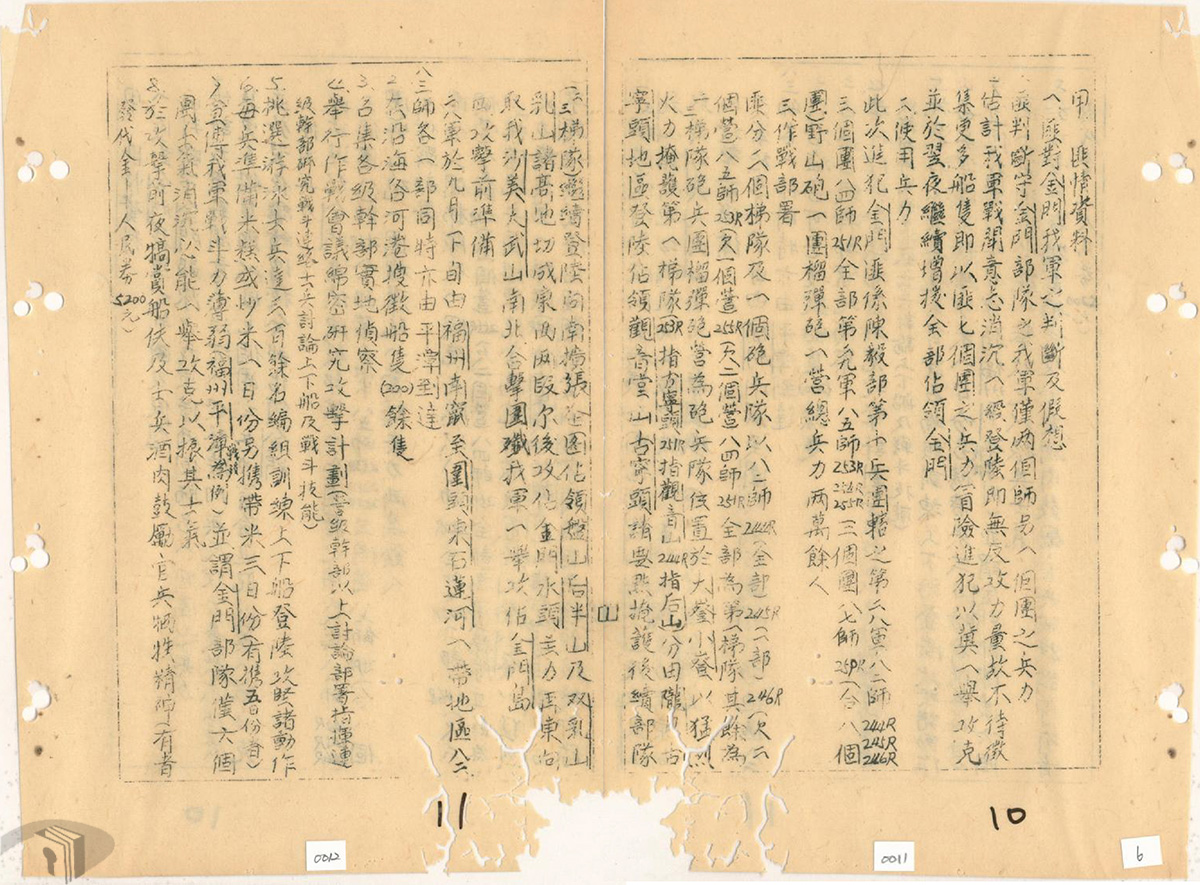 甲、匪情資料
一、匪對金門我軍之判斷及假想
匪判斷守金門部隊之我軍僅兩個師另一個團之兵力
估計我軍戰鬪意志消沉一經登陸即無反攻力量故不待徵
集更多船隻即以匪七個團之兵力冒險進犯以冀一舉攻克
並於翌夜繼續增援全部佔領金門
二、使用兵力
此次進犯金門匪係陳毅部第十兵團轄之第二八軍八二師244R 245R 246R
三個團八四師251R全部第二九軍八五師253R 254R 255R三個團八七師259R(合八個
團)野山砲一團榴彈砲一營總兵力兩萬餘人
三、作戰部署
匪分二個梯隊及一個砲兵隊以八二師244R(全部)245R(一部)246R(欠二
個營)八五師253R(欠一個營)255R(欠二個營)八四師251R全部為第一梯隊其餘為
二梯隊砲兵團榴彈砲營為砲兵隊位置於大嶝小嶝以猛烈
火力掩護第一梯隊(253R指古寧頭251R指觀音山244R指后山)分由隴口古
寧頭地區登陸佔領觀音堂山古寧頭諸要點掩護後續部隊
二梯隊繼續登陸向南擴張企圖佔領盤山台半山及双乳山
乳山諸高地切成東西兩段尔後攻佔金門水頭主力再東向
取我沙美太武山南北合擊圍殲我軍一舉攻佔金門島
四、攻擊前準備
1.二八軍於九月下旬由福州南竄至圍頭東石蓮河一帶地區八二
八三師各一部同時亦由平潭到達
2.在沿海各河港搜徵船隻(200)餘隻
3.召集各級幹部實地偵察
4.舉行作戰會議綿密研究攻擊計劃(營級幹部以上討論部署指揮連
級幹部研究戰斗連絡士兵討論上下船及戰斗技能)
5.挑選游水士兵達三百餘名編組訓練上下船登陸攻堅諸動作
6.每兵準備米糕或炒米一日份另携帶米三日份(有携五日份者)
7.宣傳我軍戰斗力薄弱(福州平潭戰役為例)並謂金門部隊僅六個
團士氣消沉必能一舉攻克以振其士氣
8.於攻擊前夜犒賞船伕及士兵酒肉鼓勵官兵犧牲精神(有者
發代金—人民券5200元)
11
10
0012
0011
6